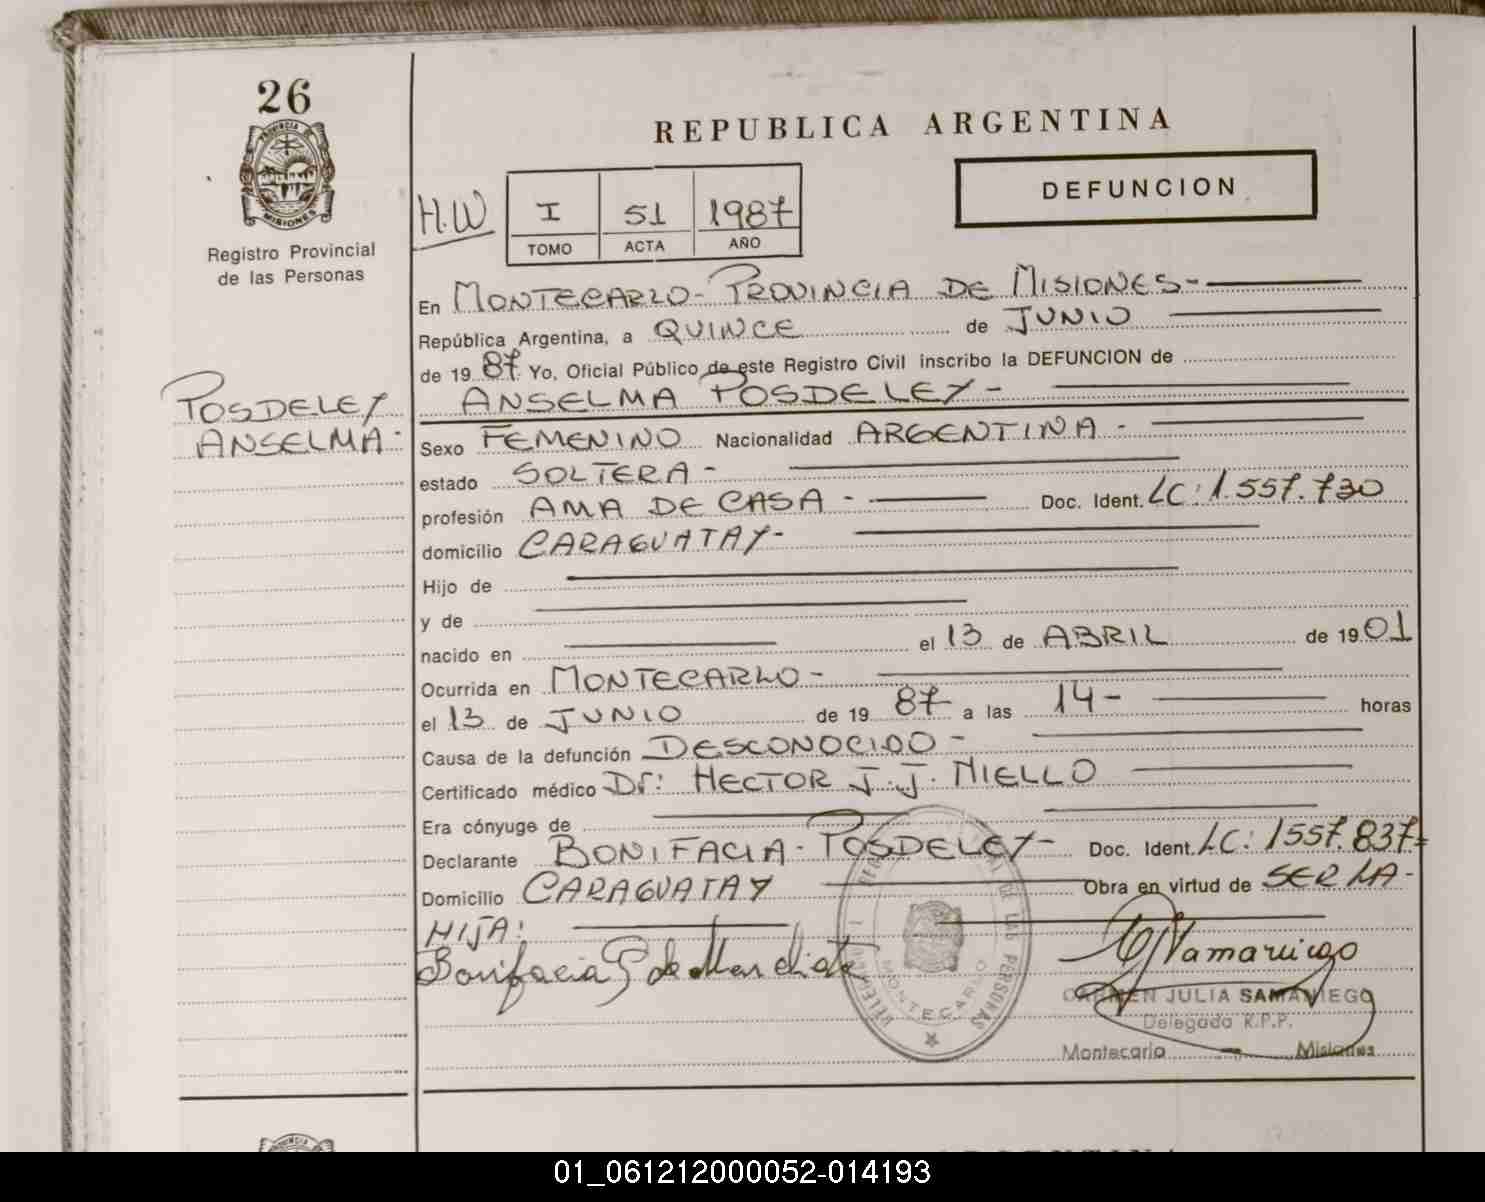 26
PROVINCIA DE
MISIONES
Registro Provincial
de las Personas
REPUBLICA ARGENTINA
DEFUNCION
H.W
I 51 1987
TOMO ACTA AÑO
En MONTECARLO - PROVINCIA DE MISIONES -
República Argentina, a QUINCE de JUNIO
de 19 87. Yo, Oficial Público de este Registro Civil inscribo la DEFUNCION de
ANSELMA POSDELEY -
POSDELEY
ANSELMA -
Sexo FEMENINO Nacionalidad ARGENTINA -
estado SOLTERA -
profesión AMA DE CASA - Doc. Ident. LC: 1.557.730
domicilio CARAGUATAY -
Hijo de
y de
nacido en el 13 de ABRIL de 19 01
Ocurrida en MONTECARLO -
el 13 de JUNIO de 19 87 a las 14 - horas
Causa de la defunción DESCONOCIDO -
Certificado médico Dr: HECTOR J. J. NIELLO
Era cónyuge de
Declarante BONIFACIA - POSDELEY - Doc. Ident. LC: 1557.837 =
Domicilio CARAGUATAY Obra en virtud de SER LA -
HIJA:
Bonifacia P de
MONTECARLO
CARMEN JULIA SAMANIEGO
Delegada R.P.P.
Montecarlo Misiones
01_061212000052-014193